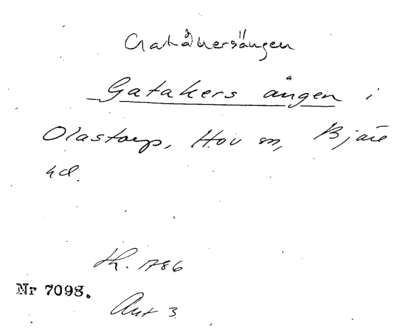 Gatåkersängen
Gatakers ängen i
Olastorp, Hov sn, Bjäre
hd.
Lh. 1786
Nr 7098.
Akt 3